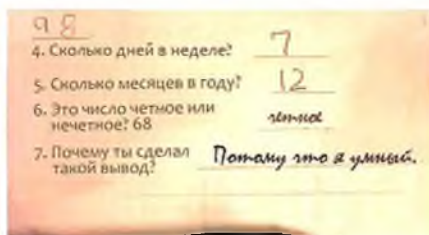 98
4. Сколько дней в неделе? 7
5. Сколько месяцев в году? 12
6. Это число четное или
нечетное? 68 четное
7. Почему ты сделал
такой вывод? Потому что я умный.